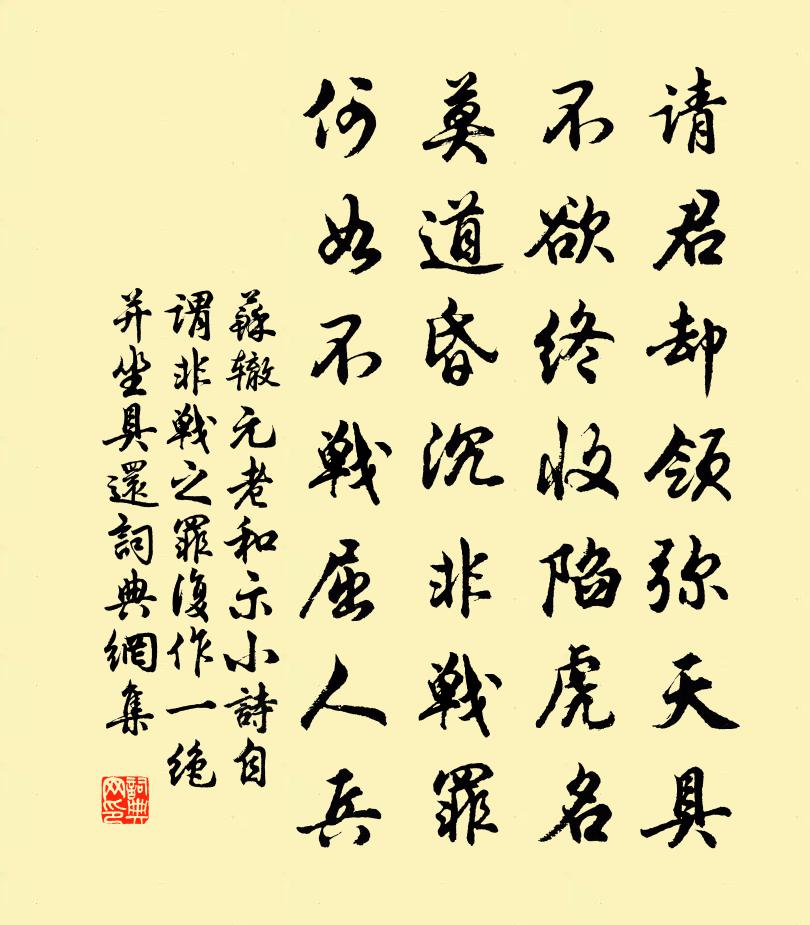 请君却领弥天具
不欲终收陷虎名
莫道昏沉非戦罪
何如不戦屈人兵
蘇辙元老和示小詩自
谓非戦之罪復作一绝
并坐具還詞典網集
詞典
网印